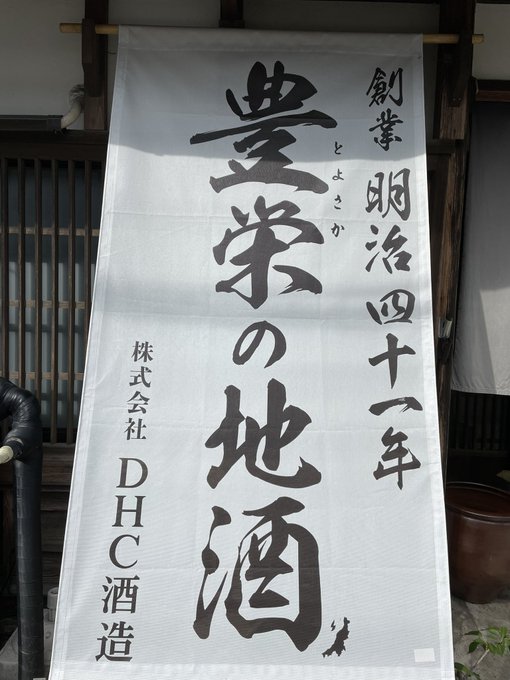 創業 明治四十一年
とよさか
豊栄の地酒
株式会社 DHC酒造